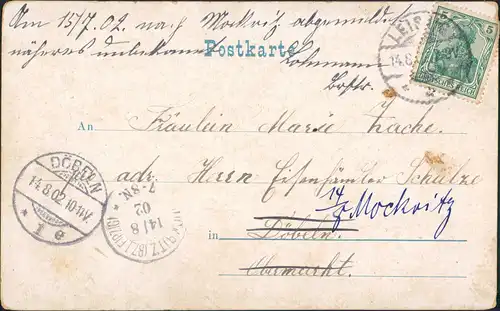 Am 15/7.02. nach Mockritz abgemeldet
näheres unbekannt
Postkarte
Lohmann
Brftr.
LEIPZIG
14.8.
5
DEUTSCHES REICH
An Fräulein Marie Zache.
adr. Herrn Eisenhändler Schulze
14/8 Mockritz
in Döbeln.
Obermarkt.
DÖBELN
14.8.02.10-11V.
* 1 e
14/8
02
7-8N.